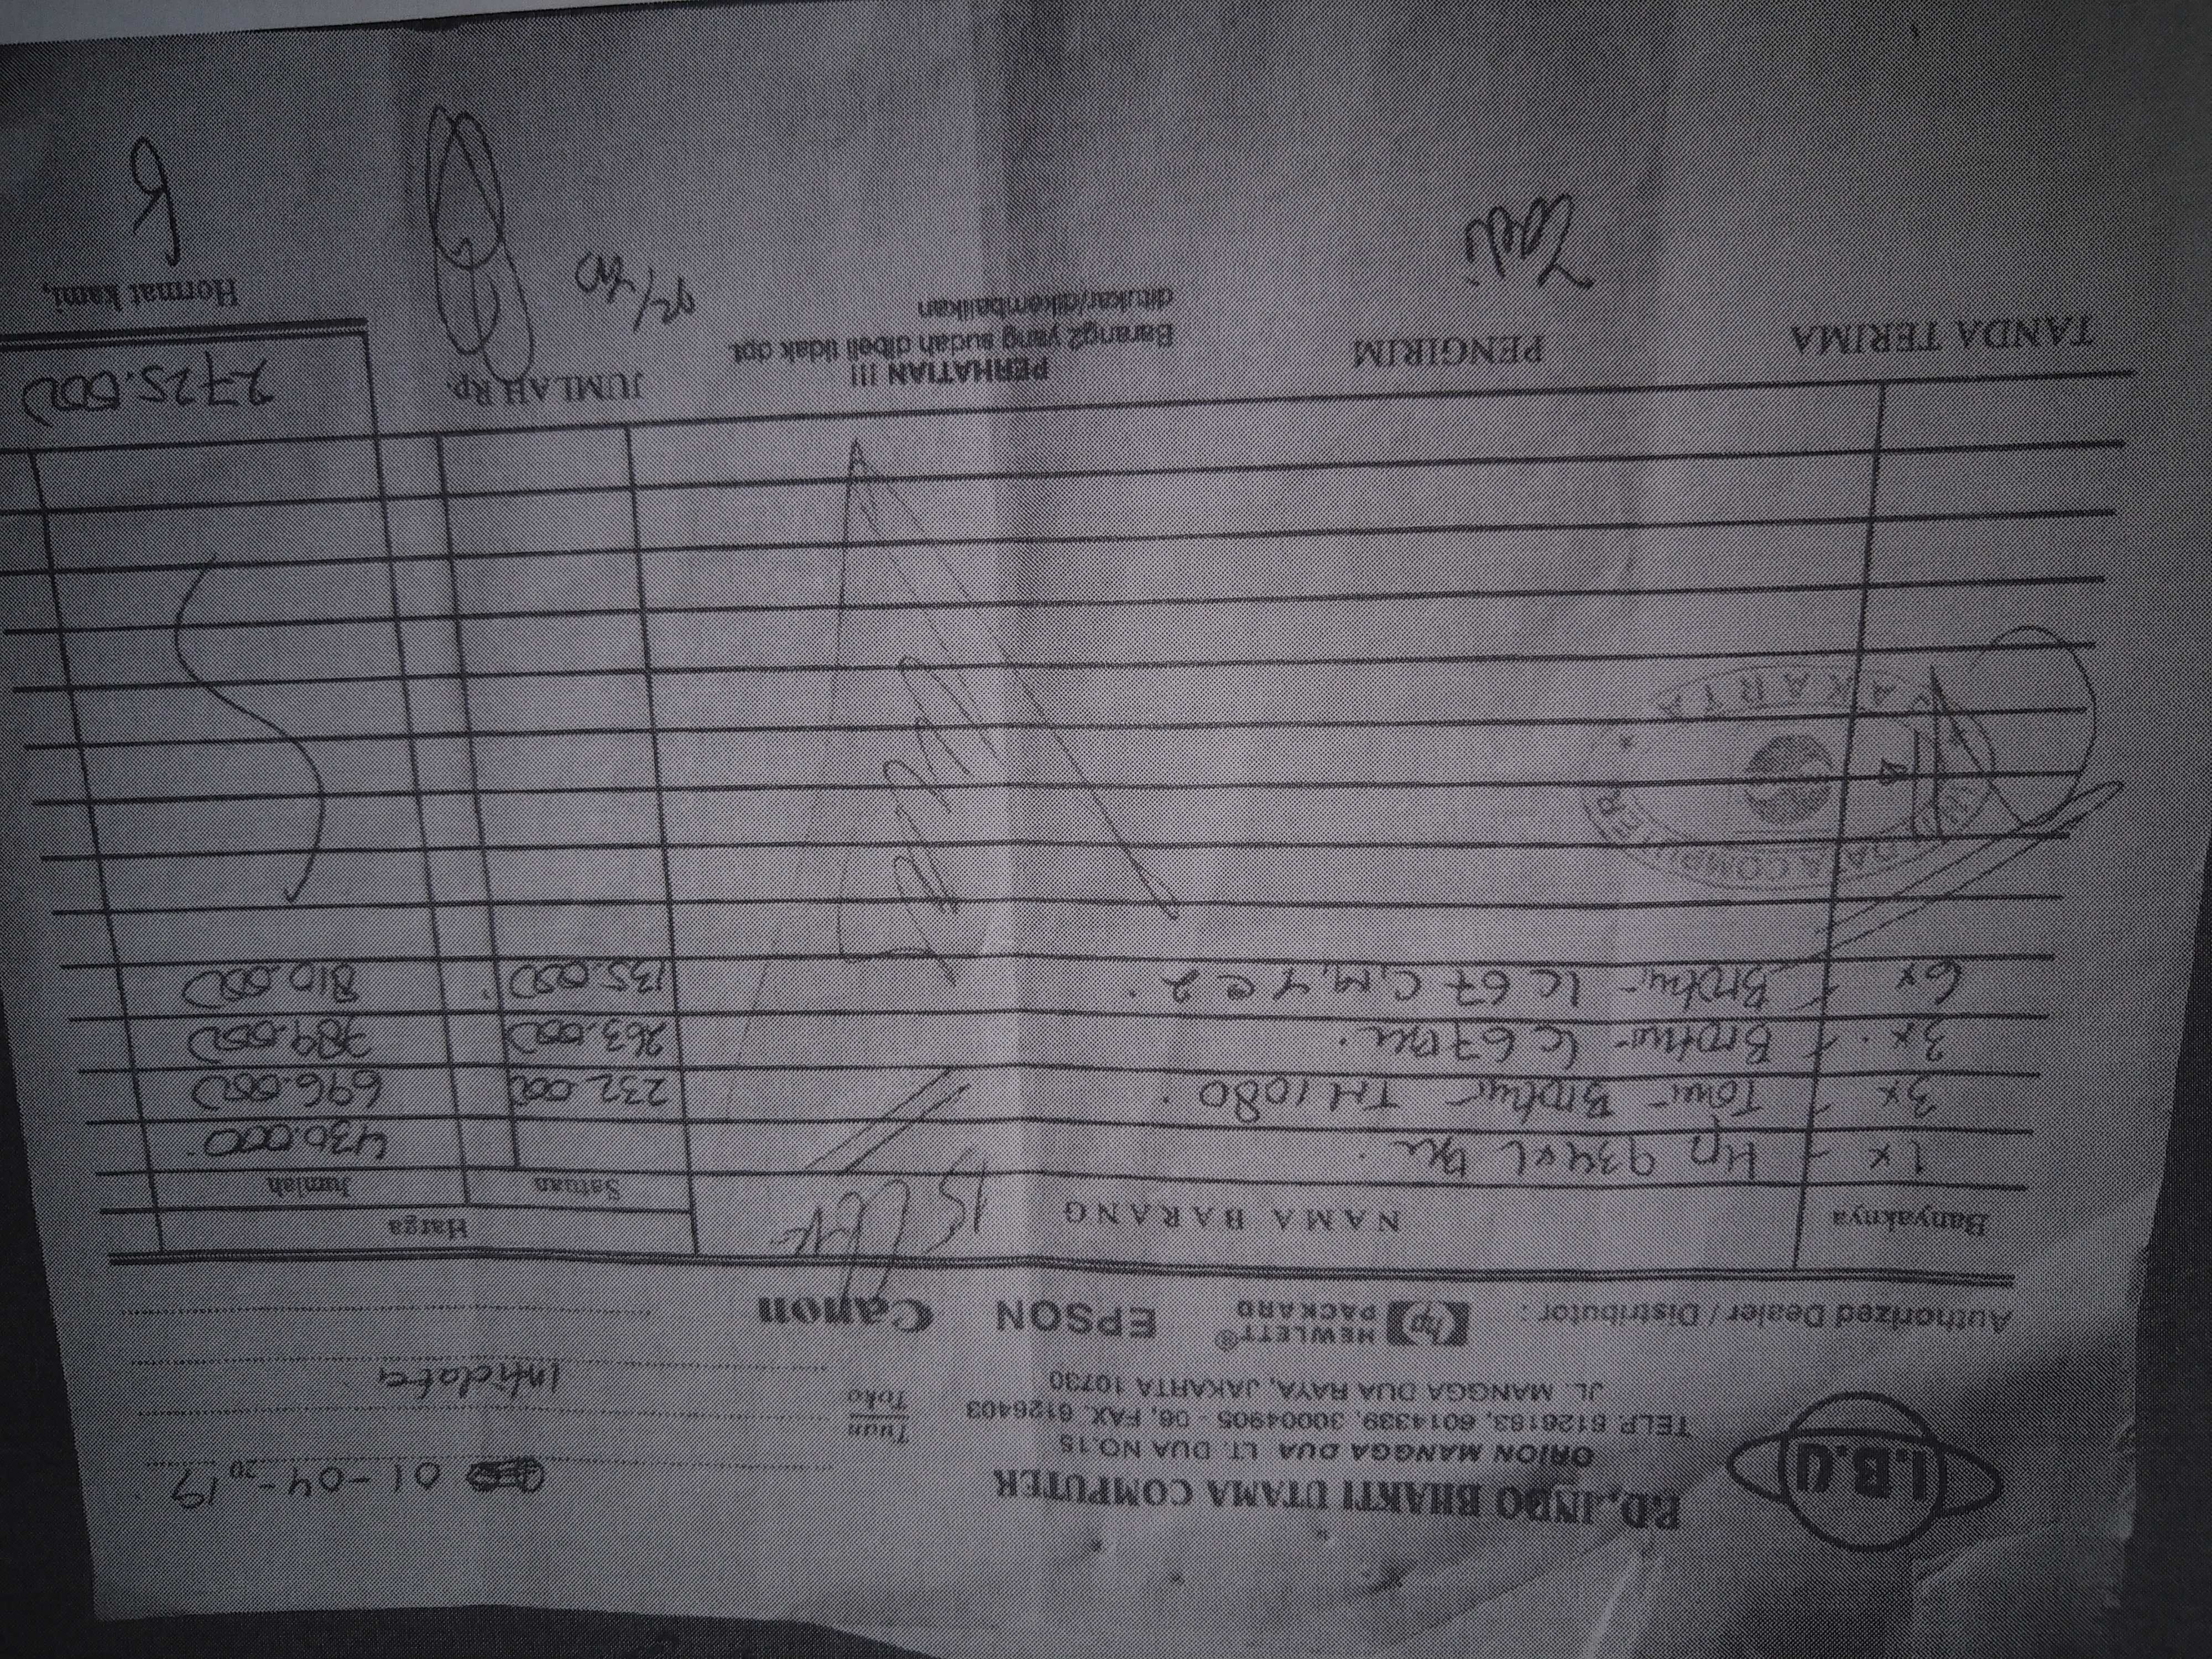 I.B.U
P.D. INDO BHAKTI UTAMA COMPUTER
ORION MANGGA DUA LT. DUA NO.15
TELP. 6126163, 6014339, 30004905 - 06, FAX. 6126403
JL. MANGGA DUA RAYA, JAKARTA 10730
01-04-2019
Tuan
Toko
Intidata
Authorized Dealer / Distributor : hp HEWLETT® PACKARD EPSON Canon
Banyaknya NAMA BARANG Harga
Satuan Jumlah
1x - Hp 934xL 430.000
3x - Toner Brother TN 1080. 232.000 696.000
3x - Brother LC 67 263.000 789.000
6x - Brother LC 67 C, M, Y @ 2. 135.000 810.000
COMPUTER
JAKARTA
TANDA TERIMA PENGIRIM PERHATIAN !!! JUMLAH Rp. 2725.000
Barang2 yang sudah dibeli tidak dpt.
ditukar/dikembalikan
Hormat kami,